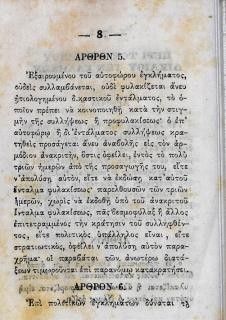 — 8 —
ΑΡΘΡΟΝ 5.
Ἐξαιρουμένου τοῦ αὐτοφώρου ἐγκλήματος,
οὐδεὶς συλλαμβάνεται, οὐδὲ φυλακίζεται ἄνευ
ᾐτιολογημένου δικαστικοῦ ἐντάλματος, τὸ ὁ-
ποῖον πρέπει νὰ κοινοποιηθῇ κατὰ τὴν στιγ-
μὴν τῆς συλλήψεως ἢ προφυλακίσεως· ὁ ἐπ'
αὐτοφώρῳ ἢ δι' ἐντάλματος συλλήψεως κρα-
τηθεὶς προσάγεται ἄνευ ἀναβολῆς εἰς τὸν ἁρ-
μόδιον ἀνακριτὴν, ὅστις ὀφείλει, ἐντὸς τὸ πολὺ
τριῶν ἡμερῶν ἀπὸ τῆς προσαγωγῆς του, εἴτε
ν' ἀπολύσῃ αὐτὸν, εἴτε νὰ ἐκδώσῃ κατ' αὐτοῦ
ἔνταλμα φυλακίσεως· παρελθουσῶν τῶν τριῶν
ἡμερῶν, χωρὶς νὰ ἐκδοθῇ ὑπὸ τοῦ ἀνακριτοῦ
ἔνταλμα φυλακίσεως, πᾶς δεσμοφύλαξ ἢ ἄλλος
ἐπιτετραμμένος τὴν κράτησιν τοῦ συλληφθέν-
τος, εἴτε πολιτικὸς ὑπάλληλος εἶναι, εἴτε
στρατιωτικὸς, ὀφείλει ν' ἀπολύσῃ αὐτὸν παρα-
χρῆμα· οἱ παραβάται τῶν ἀνωτέρω διατά-
ξεων τιμωροῦνται ἐπὶ παρανόμῳ κατακρατήσει.
ΑΡΘΡΟΝ 6.
Ἐπὶ πολιτικῶν ἐγκλημάτων δύναται τὸ